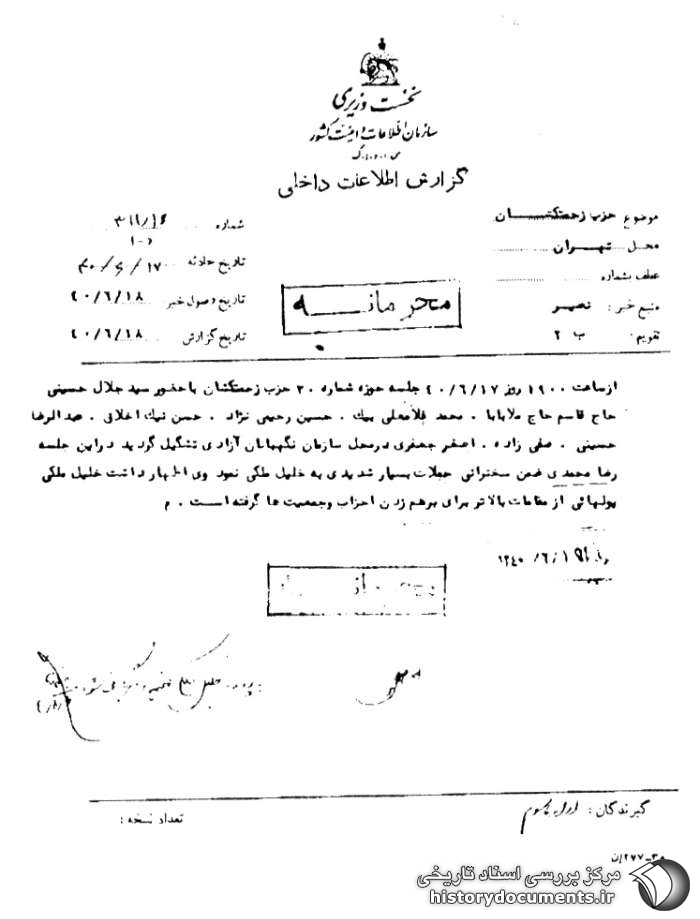 نخست وزیری
سازمان اطلاعات و امنیت کشور
س.ا.و.ا.ک
گزارش اطلاعات داخلی
موضوع حزب زحمتکشان
شماره
محل تهران
تاریخ حادثه ۴۰/۶/۱۷
عطف بشماره
تاریخ وصول خبر ۴۰/۶/۱۸
منبع خبر: نصیر
تاریخ گزارش ۴۰/۶/۱۸
تقویم: ب ۲
محرمانه
ازساعت ۱۹۰۰ روز ۴۰/۶/۱۷ جلسه حوزه شماره ۲۰ حزب زحمتکشان باحضور سید جلال حسینی
حاج قاسم حاج ملابابا . محمد غلامعلی بیک . حسین رحیمی نژاد . حسن نیک اخلاق . عبدالرضا
حسینی . صفی زاده . اصغر جعفری درمحل سازمان نگهبانان آزادی تشکیل گردید دراین جلسه
رضا محمدی ضمن سخنرانی حملات بسیار شدیدی به خلیل ملکی نمود وی اظهار داشت خلیل ملکی
پولهائی از مقامات بالاتر برای برهم زدن احزاب وجمعیت ها گرفته است . م
۱۳۴۰/۶/۱۹
محرمانه
گیرندگان: اداره سوم
تعداد نسخه:
مرکز بررسی اسناد تاریخی
historydocuments.ir